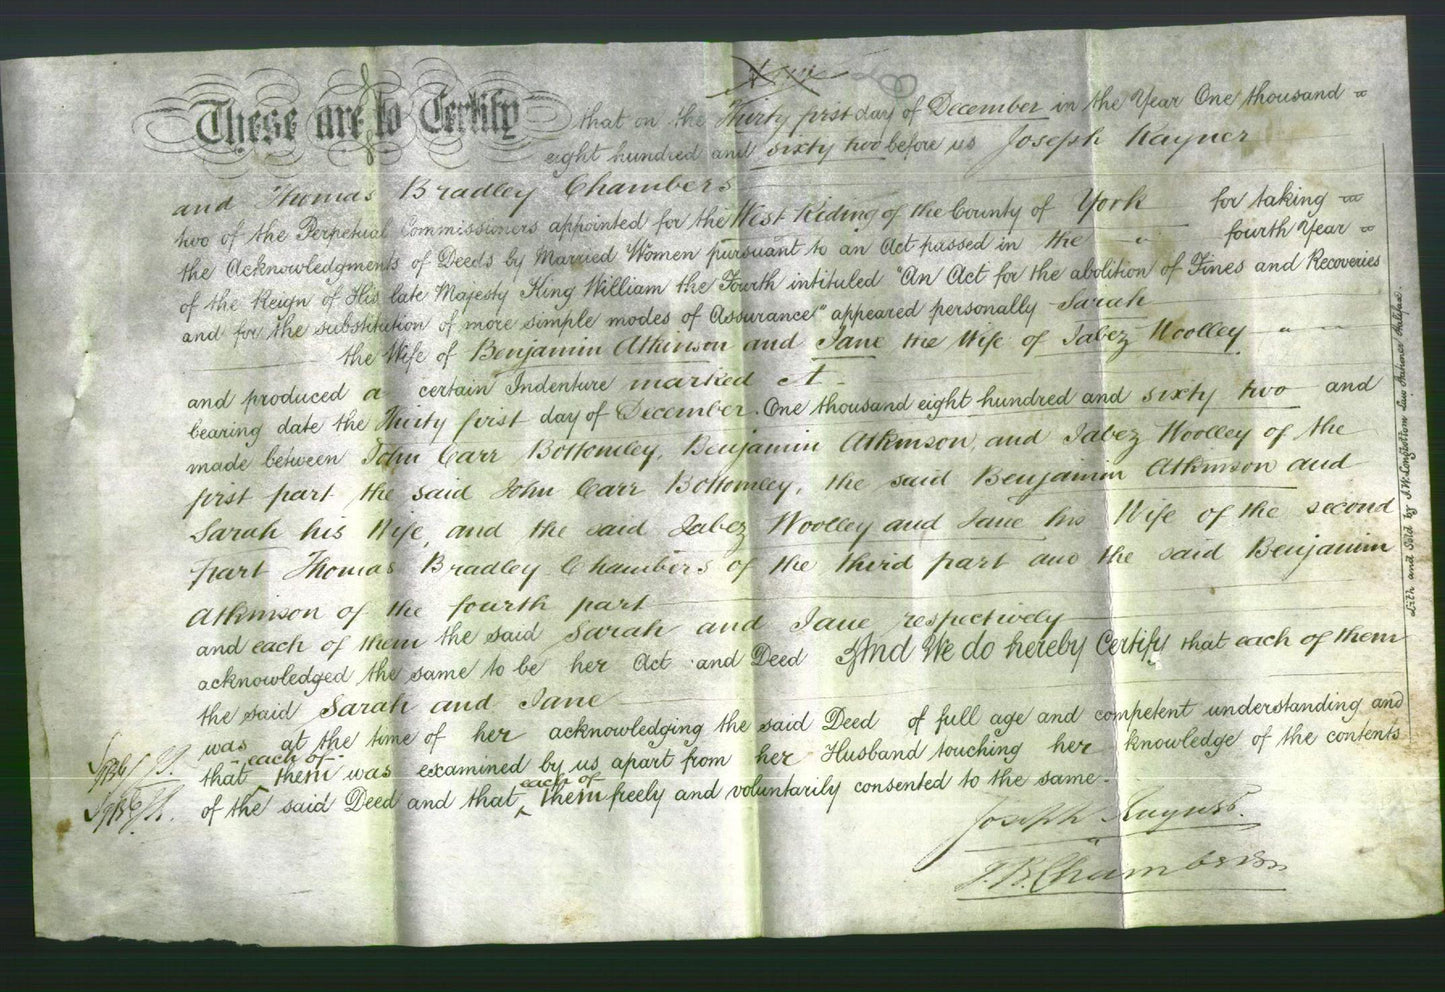 These are to Certify that on the Thirty first day of December in the Year One thousand
eight hundred and sixty two before us Joseph Rayner
and Thomas Bradley Chambers
two of the Perpetual Commissioners appointed for the West Riding of the County of York for taking
the Acknowledgments of Deeds by Married Women pursuant to an Act passed in the fourth Year
of the Reign of His late Majesty King William the Fourth intituled "An Act for the abolition of Fines and Recoveries
and for the substitution of more simple modes of Assurance" appeared personally Sarah
the Wife of Benjamin Atkinson and Jane the Wife of Jabez Woolley
and produced a certain Indenture marked A
bearing date the Thirty first day of December One thousand eight hundred and sixty two and
made between John Carr Bottomley, Benjamin Atkinson, and Jabez Woolley of the
first part the said John Carr Bottomley, the said Benjamin Atkinson and
Sarah his Wife, and the said Jabez Woolley and Jane his Wife of the second
part Thomas Bradley Chambers of the third part and the said Benjamin
Atkinson of the fourth part
and each of them the said Sarah and Jane respectively
acknowledged the same to be her Act and Deed And We do hereby Certify that each of them
the said Sarah and Jane
was at the time of her acknowledging the said Deed of full age and competent understanding and
that each of them was examined by us apart from her Husband touching her knowledge of the contents
of the said Deed and that each of them freely and voluntarily consented to the same.
Joseph Rayner
T. B. Chambers
Lith and Sold by J. W. Longbottom Law Stationer Halifax.